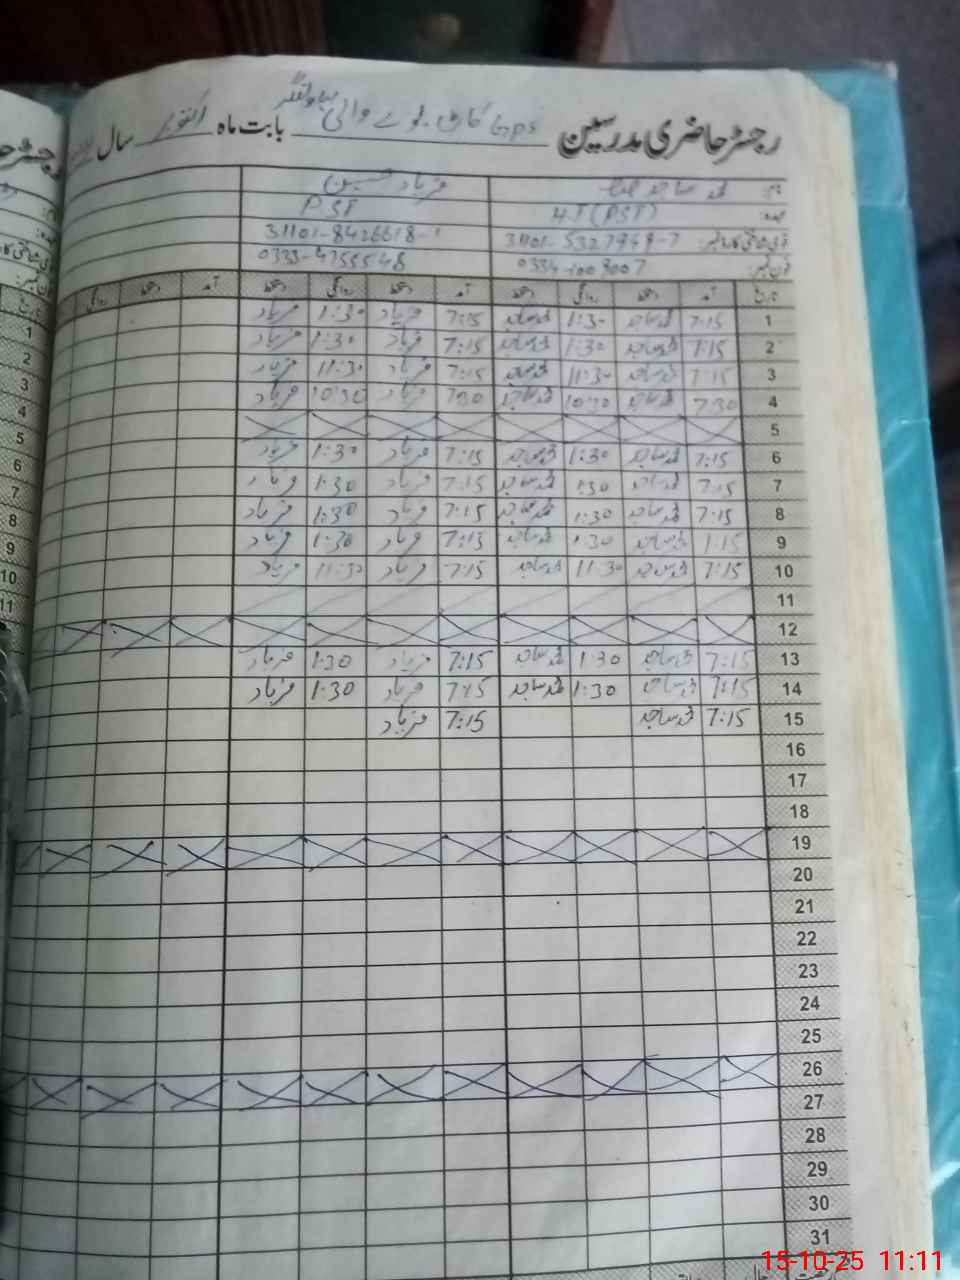 رجسٹر حاضری مدرسین Gps بابت ماہ اکتوبر سال
نام: محمد ساجد فرہاد حسین
عہدہ: H.T (PST) PST
قومی شناختی کارڈ نمبر: 31101-5327949-7 31101-8426618-1
فون نمبر: 0333-4755548
تاریخ آمد دستخط روانگی دستخط آمد دستخط روانگی دستخط آمد دستخط روانگی
1 7:15 محمد ساجد 1:30 محمد ساجد 7:15 فرہاد 1:30 فرہاد
2 7:15 محمد ساجد 1:30 محمد ساجد 7:15 فرہاد 1:30 فرہاد
3 7:15 محمد ساجد 11:30 محمد ساجد 7:15 فرہاد 11:30 فرہاد
4 7:30 محمد ساجد 10:30 محمد ساجد 7:30 فرہاد 10:30 فرہاد
5
6 7:15 محمد ساجد 1:30 محمد ساجد 7:15 فرہاد 1:30 فرہاد
7 7:15 محمد ساجد 1:30 محمد ساجد 7:15 فرہاد 1:30 فرہاد
8 7:15 محمد ساجد 1:30 محمد ساجد 7:15 فرہاد 1:30 فرہاد
9 7:15 محمد ساجد 1:30 محمد ساجد 7:15 فرہاد 1:30 فرہاد
10 7:15 محمد ساجد 11:30 محمد ساجد 7:15 فرہاد 11:30 فرہاد
11
12
13 7:15 محمد ساجد 1:30 محمد ساجد 7:15 فرہاد 1:30 فرہاد
14 7:15 محمد ساجد 1:30 محمد ساجد 7:15 فرہاد 1:30 فرہاد
15 7:15 محمد ساجد 7:15 فرہاد
16
17
18
19
20
21
22
23
24
25
26
27
28
29
30
31
1
2
3
4
5
6
7
8
9
10
11
15-10-25 11:11